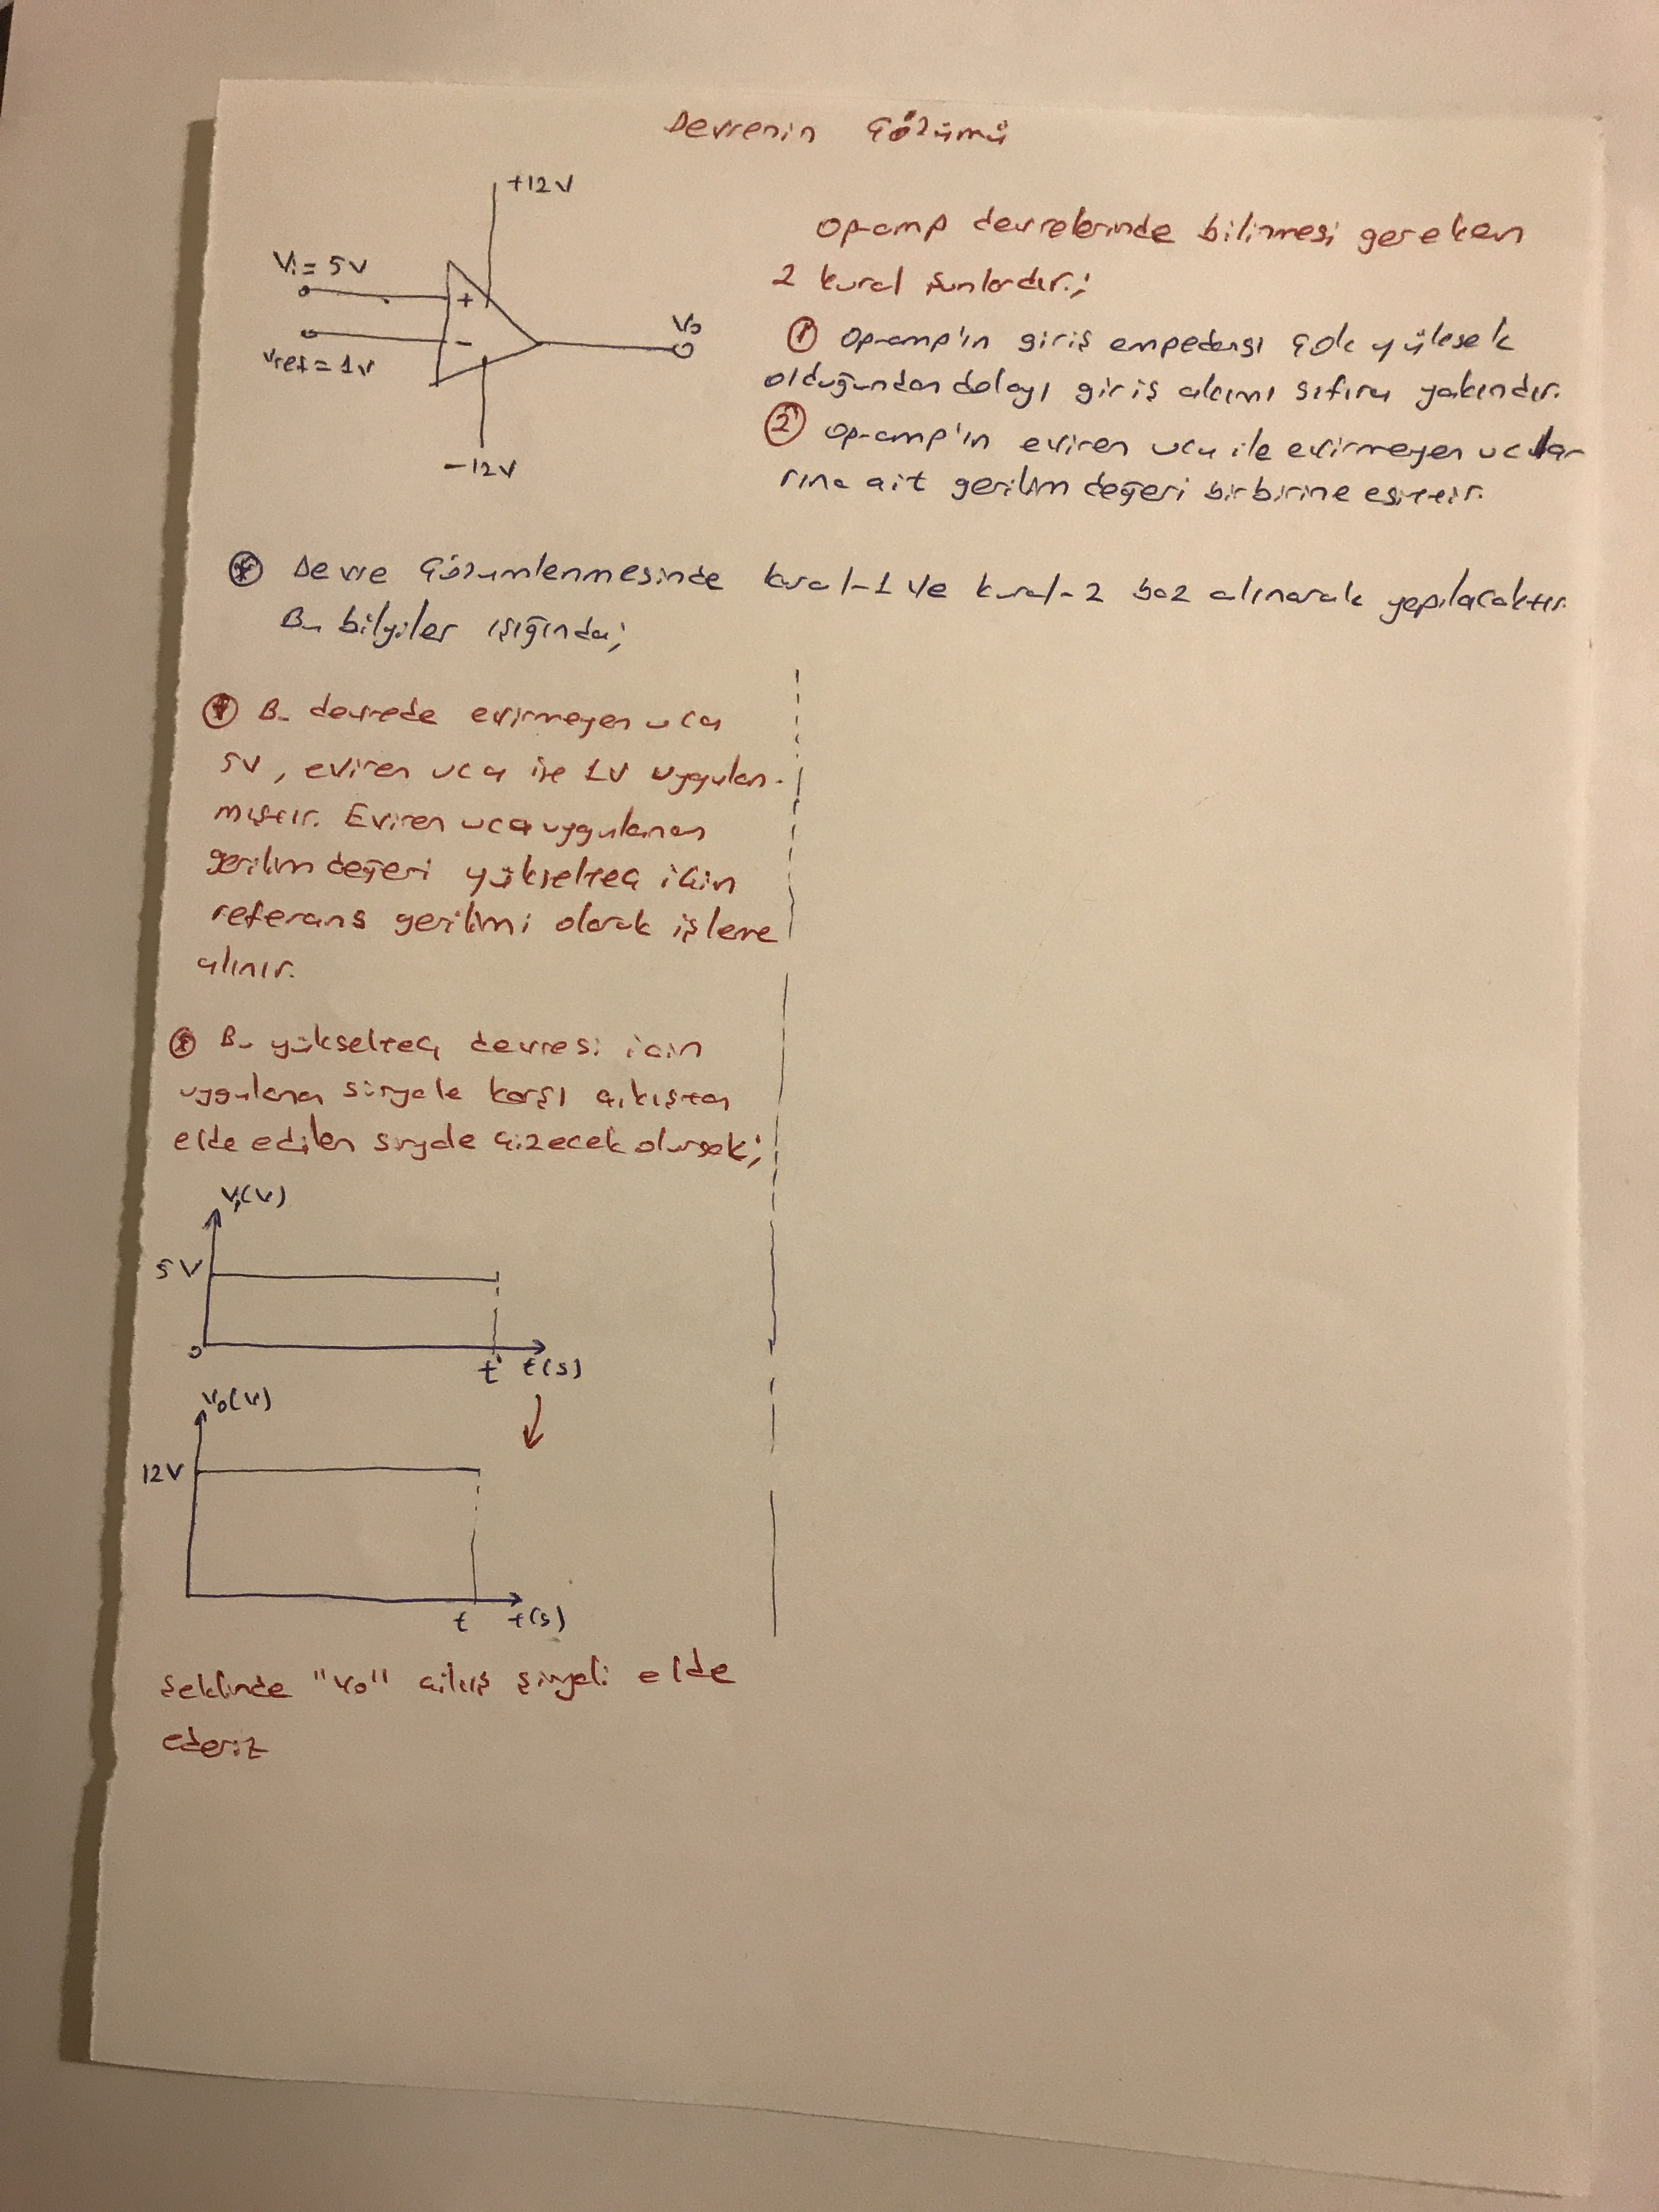 Devrenin Çözümü
+12V
Vi = 5V
+
-
Vref = 1V
Vo
-12V
Op-amp devrelerinde bilinmesi gereken
2 kural şunlardır.;
① Op-amp'ın giriş empedansı çok yüksek
olduğundan dolayı giriş akımı sıfıra yakındır.
② Op-amp'ın eviren ucu ile evirmeyen uçla-
rına ait gerilim değeri birbirine eşittir.
* Devre Çözümlenmesinde kural-1 ve kural-2 baz alınarak yapılacaktır.
Bu bilgiler ışığında;
* Bu devrede evirmeyen uca
5V, eviren uca ise 1V uygulan-
mıştır. Eviren uca uygulanan
gerilim değeri yükselteç için
referans gerilimi olarak işleme
alınır.
* Bu yükselteç devresi için
uygulanan sinyale karşı çıkıştan
elde edilen sinyale çizecek olursak;
Vi(V)
5V
0
t t(s)
Vo(V)
12V
t t(s)
Şeklinde "Vo" çıkış sinyali elde
ederiz